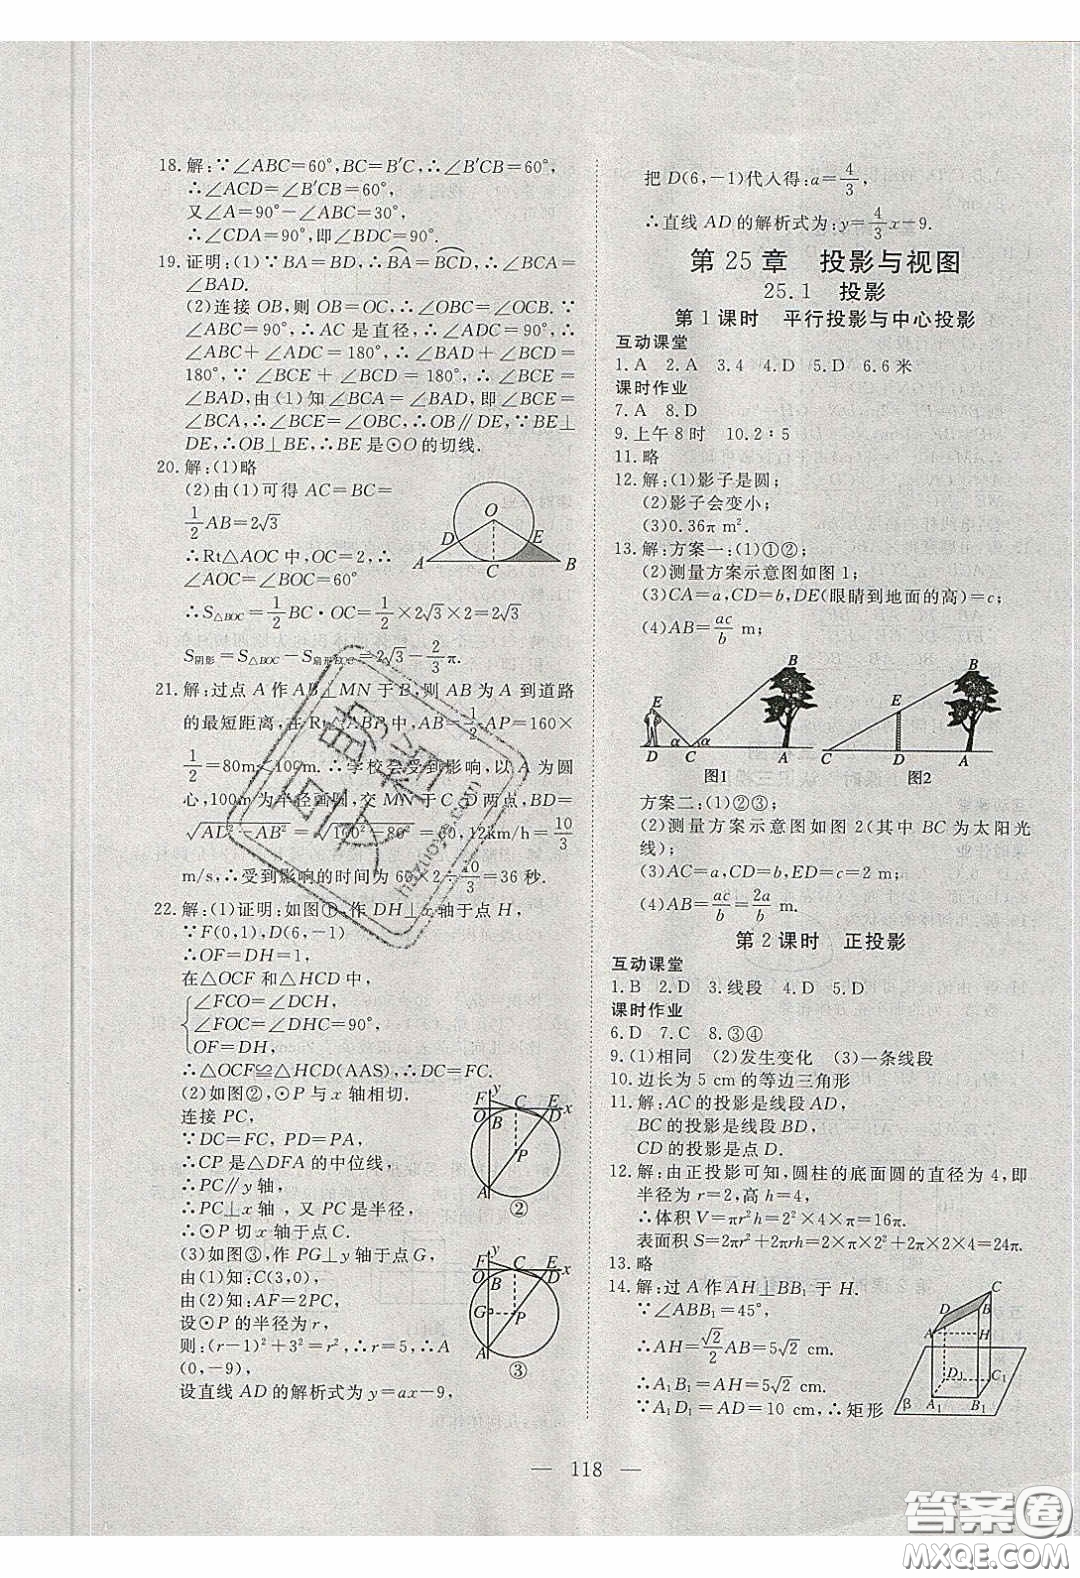 18.解:∵∠ABC=60°,BC=B′C,∴∠B′CB=60°,
∴∠ACD=∠B′CB=60°,
又∠A=90°-∠ABC=30°,
∴∠CDA=90°,即∠BDC=90°.
19.证明:(1)∵BA=BD,∴BA=BCD,∴∠BCA=
∠BAD.
(2)连接OB,则OB=OC,∴∠OBC=∠OCB.∵
∠ABC=90°,∴AC是直径,∴∠ADC=90°,
∴∠ABC+∠ADC=180°,∴∠BAD+∠BCD=
180°,∵∠BCE+∠BCD=180°,∴∠BCE=
∠BAD,由(1)知∠BCA=∠BAD,∴∠BCE=
∠BCA,∴∠BCE=∠OBC,∴OB∥DE,∵BE⊥
DE,∴OB⊥BE,∴BE是⊙O的切线.
20.解:(1)略
(2)由(1)可得AC=BC=
1/2 AB=2√3
∴Rt△AOC中,OC=2,∴
∠AOC=∠BOC=60°
∴S△BOC=1/2 BC·OC=1/2×2√3×2=2√3
S阴影=S△BOC-S扇形EOC=2√3-2/3π.
O
D E
A C B
21.解:过点A作AB⊥MN于B,则AB为A到道路
的最短距离,在Rt△ABP中,AB=1/2 AP=160×
1/2=80m<100m.∴学校会受到影响,以A为圆
心,100m为半径画圆,交MN于C、D两点,BD=
√(AD²-AB²)=√(100²-80²)=60,12km/h=10/3
m/s,∴受到影响的时间为60×2÷10/3=36秒.
22.解:(1)证明:如图①,作DH⊥x轴于点H,
∵F(0,1),D(6,-1)
∴OF=DH=1,
在△OCF和△HCD中,
∠FCO=∠DCH,
∠FOC=∠DHC=90°,
OF=DH,
∴△OCF≌△HCD(AAS),∴DC=FC.
(2)如图②,⊙P与x轴相切.
连接PC,
∵DC=FC,PD=PA,
∴CP是△DFA的中位线,
∴PC∥y轴,
∴PC⊥x轴,又PC是半径,
∴⊙P切x轴于点C.
(3)如图③,作PG⊥y轴于点G,
由(1)知:C(3,0),
由(2)知:AF=2PC,
设⊙P的半径为r,
则:(r-1)²+3²=r²,∴r=5,∴A
(0,-9),
设直线AD的解析式为y=ax-9,
F y C E x
O B D
P
A
②
F y C E x
O B D
G P
A
③
把D(6,-1)代入得:a=4/3,
∴直线AD的解析式为:y=4/3 x-9.
第25章 投影与视图
25.1 投影
第1课时 平行投影与中心投影
互动课堂
1.A 2.A 3.4 4.D 5.D 6.6米
课时作业
7.A 8.D
9.上午8时 10.2∶5
11.略
12.解:(1)影子是圆;
(2)影子会变小;
(3)0.36π m².
13.解:方案一:(1)①②;
(2)测量方案示意图如图1;
(3)CA=a,CD=b,DE(眼睛到地面的高)=c;
(4)AB=ac/b m;
E B
D α C α A
图1
E B
C D A
图2
方案二:(1)②③;
(2)测量方案示意图如图2(其中BC为太阳光
线);
(3)AC=a,CD=b,ED=c=2 m;
(4)AB=ac/b=2a/b m.
第2课时 正投影
互动课堂
1.B 2.D 3.线段 4.D 5.D
课时作业
6.D 7.C 8.③④
9.(1)相同 (2)发生变化 (3)一条线段
10.边长为5 cm的等边三角形
11.解:AC的投影是线段AD,
BC的投影是线段BD,
CD的投影是点D.
12.解:由正投影可知,圆柱的底面圆的直径为4,即
半径为r=2,高h=4,
∴体积V=πr²h=2²×4×π=16π.
表面积S=2πr²+2πrh=2×π×2²+2π×2×4=24π.
13.略
14.解:过A作AH⊥BB₁于H.
∵∠ABB₁=45°,
∴AH=√2/2 AB=5√2 cm.
∴A₁B₁=AH=5√2 cm.
∵A₁D₁=AD=10 cm,∴矩形
C
D B
A H
D₁ C₁
β A₁ B₁
— 118 —
互助文程
huzuoye.com
答案圈
MXQE.COM